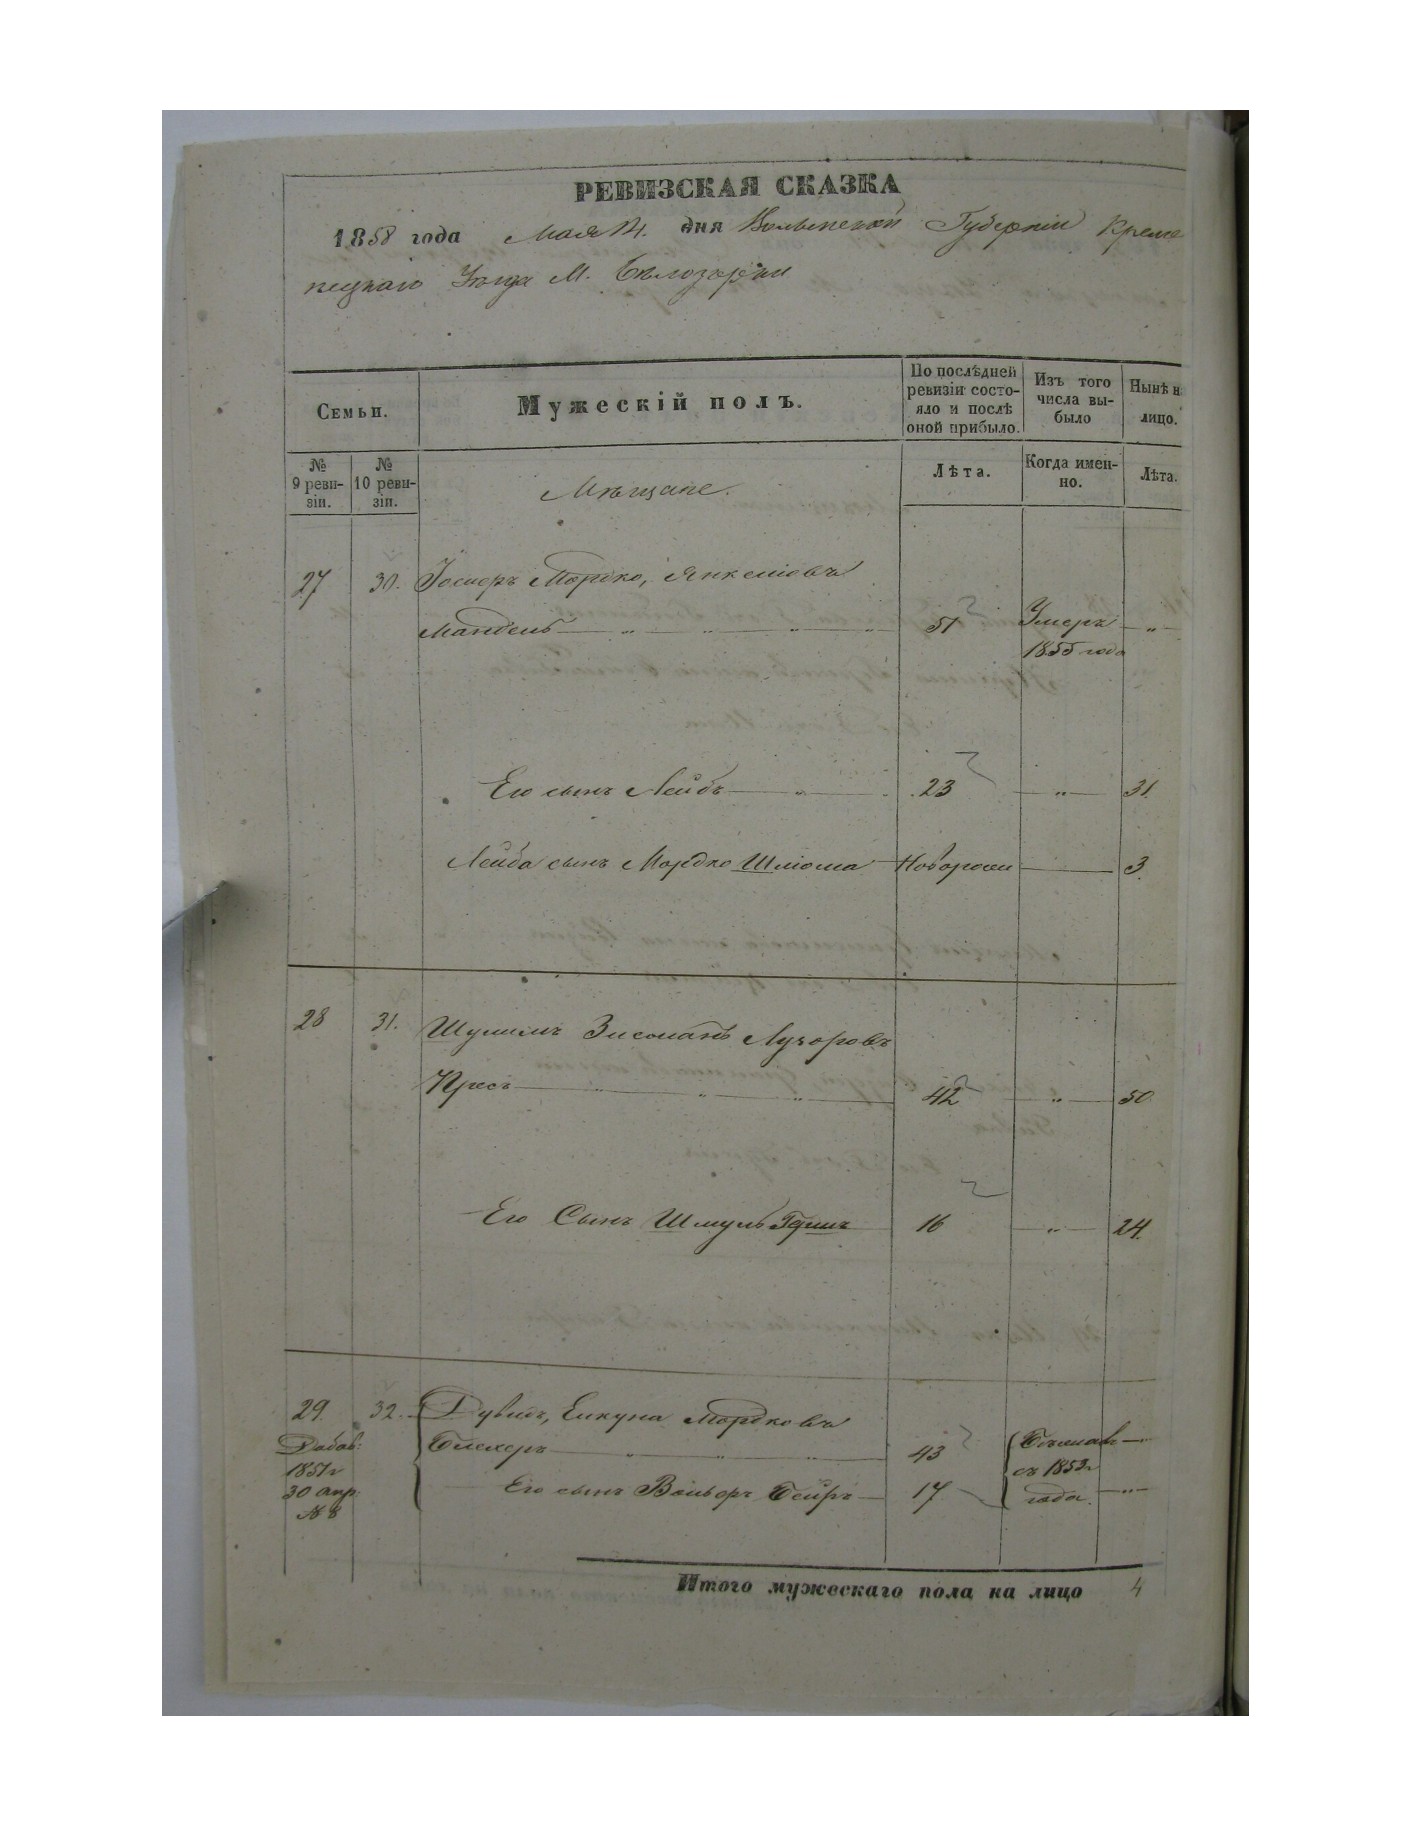 РЕВИЗСКАЯ СКАЗКА
1858 года Мая дня Волынской Губерніи Креме
нецкаго Уезда М. Белозерки
Семьи.
Мужескій полъ.
По послѣдней ревизіи состо-яло и послѣ оной прибыло.
Изъ того числа вы-было
Нынѣ н лицо.
№ 9 реви-зіи.
№ 10 реви-зіи.
Мѣщане.
Лѣта.
Когда имен-но.
Лѣта.
27 30. Мордко, Янкелiовъ
Мандель 51 Умеръ
1855 года
Его сынъ Лейбъ 23 31.
Лейба сынъ Мордко Шліома Новорожи 3.
28 31. Шулимъ Зисманъ Лузоровъ
Кресъ 42 50
Его Сынъ Шмуль Гершъ 16 24.
29. 32. Дувидъ, Мордковъ
Добав: Блехеръ 43
1851г съ 1853г
30 апр: Его сынъ Вольфъ Бейръ 17 года.
№ 8
Итого мужескаго пола на лицо 4